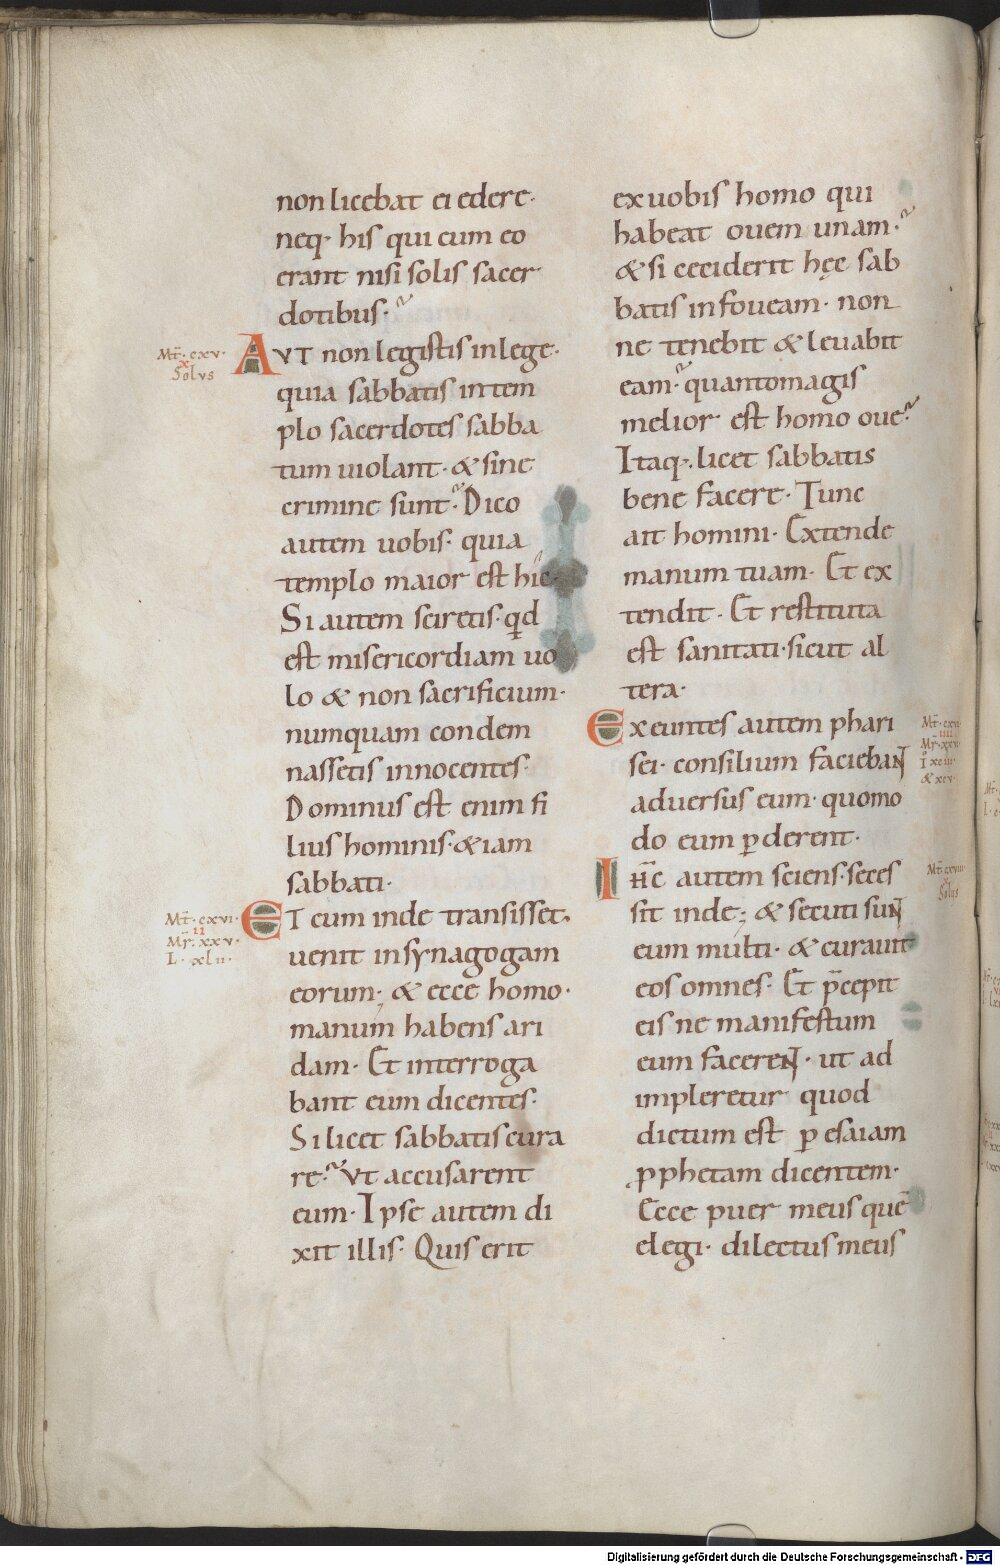 non licebat ei edere·
neq· his qui cum eo
erant nisi solis sacer
dotibus·
Mt̄· cxv·
x
Solus
AVT non legistis in lege·
quia sabbatis in tem
plo sacerdotes sabba
tum uiolant· & sine
crimine sunt· Dico
autem uobis· quia
templo maior est hic·
Si autem sciretis· qd̄
est misericordiam uo
lo & non sacrificium·
numquam condem
nassetis innocentes·
Dominus est enim fi
lius hominis· & iam
sabbati·
Mt̄· cxvi·
II
Mr̄· xxv·
L· xlii·
ET cum inde transisset·
uenit in synagogam
eorum· & ecce homo·
manum habens ari
dam· Et interroga
bant eum dicentes·
Si licet sabbatis cura
re· Vt accusarent
eum· Ipse autem di
xit illis· Quis erit
ex uobis homo qui
habeat ouem unam·
& si ceciderit hęc sab
batis in foueam· non
ne tenebit & leuabit
eam· quanto magis
melior est homo oue·
Itaq·, licet sabbatis
bene facere· Tunc
ait homini· Extende
manum tuam· Et ex
tendit· Et restituta
est sanitati· sicut al
tera·
Exeuntes autem phari
sei· consilium faciebant
aduersus eum· quomo
do eum ꝑderent·
Ihc̄ autem sciens· seces
sit inde; & secuti sunt
eum multi· & curauit
eos omnes· Et p̄cepit
eis ne manifestum
eum facerent· ut ad
impleretur quod
dictum est ꝑ esaiam
ꝓphetam dicentem·
Ecce puer meus quē
elegi· dilectus meus
Mt̄· cxviii
x
Solus
Digitalisierung gefördert durch die Deutsche Forschungsgemeinschaft - DFG